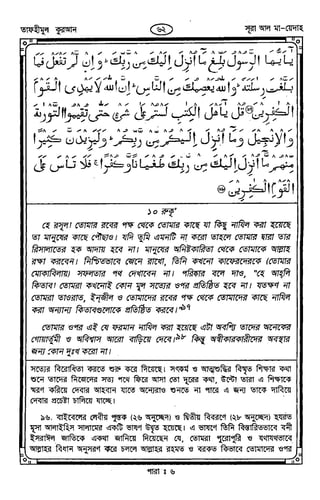 তাফহীমুল কুরআন
৬২
সূরা আল মা-য়েদাহ
يٰٓاَيُّهَا الرَّسُوْلُ بَلِّغْ مَآ اُنْزِلَ اِلَيْكَ مِنْ رَّبِّكَ ؕ وَاِنْ لَّمْ تَفْعَلْ فَمَا
بَلَّغْتَ رِسٰلَتَهٗ ؕ وَاللّٰهُ يَعْصِمُكَ مِنَ النَّاسِ ؕ اِنَّ اللّٰهَ لَا يَهْدِى الْقَوْمَ
الْكٰفِرِيْنَ ۝ قُلْ يٰٓاَهْلَ الْكِتٰبِ لَسْتُمْ عَلٰى شَىْءٍ حَتّٰى تُقِيْمُوا التَّوْرٰىةَ
وَالْاِنْجِيْلَ وَمَآ اُنْزِلَ اِلَيْكُمْ مِّنْ رَّبِّكُمْ ؕ وَلَيَزِيْدَنَّ كَثِيْرًا
مِّنْهُمْ مَّآ اُنْزِلَ اِلَيْكَ مِنْ رَّبِّكَ طُغْيَانًا وَّكُفْرًا ۚ فَلَا تَاْسَ عَلَى
الْقَوْمِ الْكٰفِرِيْنَ ۝
১০ রুকূ'
হে রসূল! তোমার রবের পক্ষ থেকে তোমার কাছে যা কিছু নাযিল করা হয়েছে
তা মানুষের কাছে পৌঁছাও। যদি তুমি এমনটি না করো তাহলে তোমার দ্বারা তার
রিসালাতের হক আদায় হবে না। মানুষের অনিষ্টকারিতা থেকে তোমাকে আল্লাহ
রক্ষা করবেন। নিশ্চিতভাবে জেনে রাখো, তিনি কখনো কাফেরদেরকে (তোমার
মোকাবিলায়) সফলতার পথ দেখাবেন না। পরিষ্কার বলে দাও, "হে আহ্‌লি
কিতাব! তোমরা কখনোই কোন মূল সত্যের ওপর প্রতিষ্ঠিত হবে না। যতক্ষণ না
তোমরা তাওরাত, ইনজীল ও তোমাদের রবের পক্ষ থেকে তোমাদের কাছে নাযিল
করা অন্যান্য কিতাবগুলোকে প্রতিষ্ঠিত করবে।"৯৭
তোমার ওপর এই যে ফরমান নাযিল করা হয়েছে এটা অবশ্যি তাদের অনেকের
গোয়ার্তুমী ও অবিশ্বাস আরো বাড়িয়ে দেবে।৯৮ কিন্তু অস্বীকারকারীদের অবস্থার
জন্য কোন দুঃখ করো না।
সত্যের বিরোধিতা করতে শুরু করে দিয়েছে। সৎকর্ম ও আত্মশুদ্ধির বিস্মৃত শিক্ষার কথা
শুনে তাদের নিজেদের সত্য পথে ফিরে আসা তো দূরের কথা, উল্টো তারা এ শিক্ষাকে
স্মরণ করিয়ে দেবার আহবান যাতে অন্যেরাও শুনতে না পারে এ জন্য তাকে দাবিয়ে
দেবার প্রচেষ্টা চালিয়ে যাচ্ছে।
৯৬. বাইবেলের লেবীয় পুস্তক (২৬ অনুচ্ছেদ) ও দ্বিতীয় বিবরণে (২৮ অনুচ্ছেদ) হযরত
মূসা আলাইহিস সালামের একটি ভাষণ উদ্ধৃত হয়েছে। এ ভাষণে তিনি বিস্তারিতভাবে বনী
ইসরাঈল জাতিকে একথা জানিয়ে দিয়েছেন যে, তোমরা পুরোপুরি ও যথাযথভাবে
আল্লাহর বিধান অনুসরণ করে চললে আল্লাহর রহমত ও বরকত কিভাবে তোমাদের ওপর
পারা : ৬